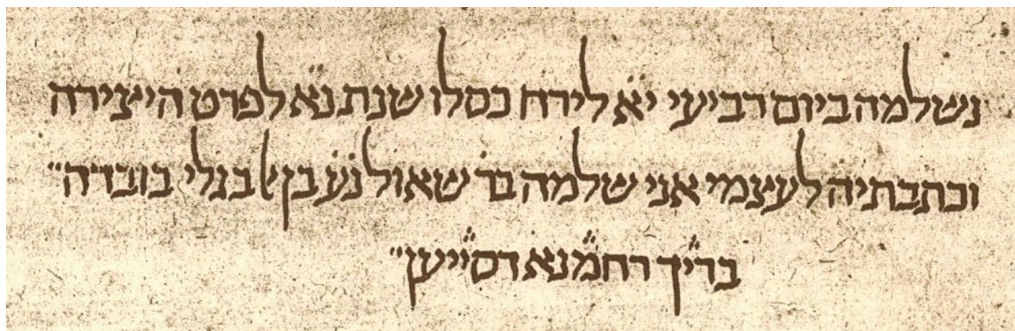 נשלמה ביום רביעי י״א לירח כסלו שנת נ״א לפרט היצירה
וכתבתיה לעצמי אני שלמה בר׳ שאול נ״ע בן אלבגלי בובדה״
בריך רחמנא דסייען״